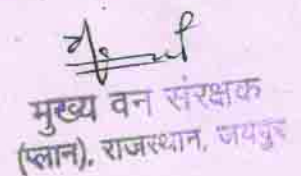 मुख्य वन संरक्षक
(प्लान), राजस्थान, जयपुर